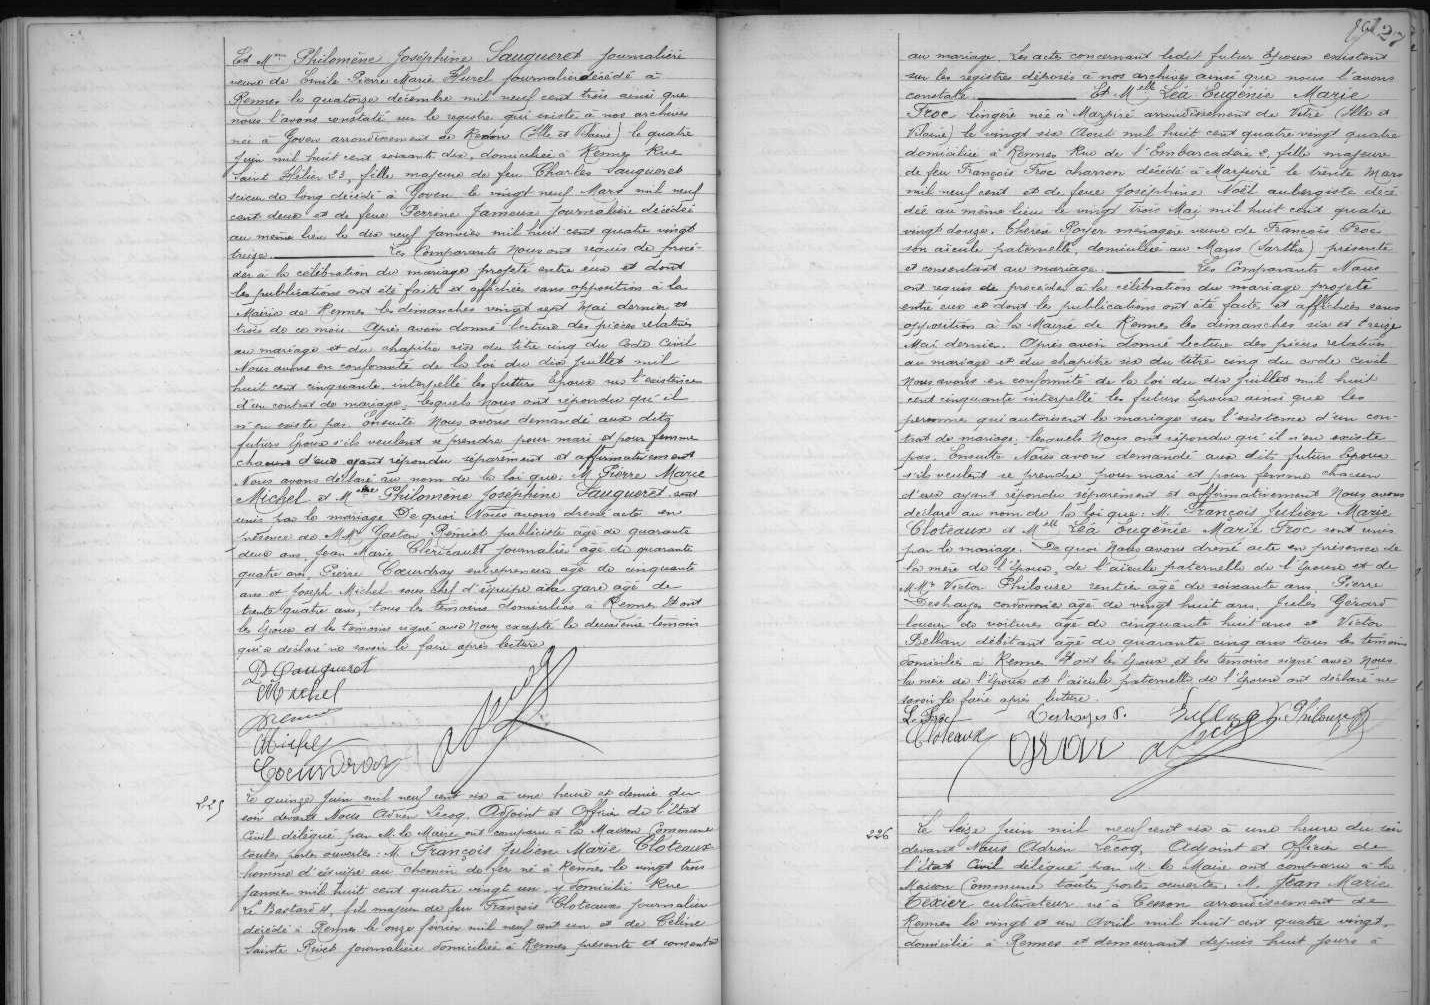 Et Mme Philomène Joséphine Sauqueret journalière
veuve de Emile Pierre Marie Hurel journalier décédé à
Rennes le quatorze décembre mil neuf cent trois ainsi que
nous l'avons constaté sur le registre qui existe à nos archives
née à Goven arrondissement de Redon (Ille et Vilaine) le quatre
Juin mil huit cent soixante dix, domiciliée à Rennes Rue
Saint Hélier 23, fille majeure de feu Charles Sauqueret
scieur de long décédé à Goven le vingt neuf Mars mil neuf
cent deux et de feue Perrine Jameux journalière décédée
au même lieu le dix neuf Janvier mil huit cent quatre vingt
treize. Les Comparants Nous ont requis de procé-
der à la célébration du mariage projeté entre eux et dont
les publications ont été faites et affichées sans opposition à la
Mairie de Rennes les dimanches vingt sept Mai dernier et
trois de ce mois. Après avoir donné lecture des pièces relatives
au mariage et du chapitre six du titre cinq du Code Civil
Nous avons en conformité de la loi du dix juillet mil
huit cent cinquante, interpellé les futurs Epoux sur l'existence
d'un contrat de mariage, lesquels Nous ont répondu qu'il
n'en existe pas. Ensuite Nous avons demandé aux dits
futurs Epoux s'ils veulent se prendre pour mari et pour femme
chacun d'eux ayant répondu séparément et affirmativement
Nous avons déclaré au nom de la loi que M. Pierre Marie
Michel et Mme Philomène Joséphine Sauqueret sont
unis par le mariage De quoi Nous avons dressé acte en
présence de MM. Gaston Rémiot publiciste âgé de quarante
deux ans, Jean Marie Cléricault journalier âgé de quarante
quatre ans, Pierre Coeurdray entrepreneur âgé de cinquante
ans et Joseph Michel sous chef d'équipe à la gare âgé de
trente quatre ans, tous les témoins domiciliés à Rennes Et ont
les Epoux et les témoins signé avec Nous excepté le deuxième témoin
qui a déclaré ne savoir le faire après lecture.
P Sauqueret
Michel
Michel
Coeurdray
225
Le quinze Juin mil neuf cent six à une heure et demie du
soir devant Nous Adrien Lecoq, Adjoint et Officier de l'Etat
Civil délégué par M. le Maire ont comparu à la Maison Commune
toutes portes ouvertes : M. François Julien Marie Cloteaux
homme d'équipe au chemin de fer né à Rennes le vingt trois
Janvier mil huit cent quatre vingt un, y domicilié Rue
Le Bastard, fils majeur de feu François Cloteaux journalier
décédé à Rennes le onze février mil neuf cent un et de Céline
Sainte Rivet journalière domiciliée à Rennes présente et consentant
27
au mariage. Les actes concernant ledit futur Epoux existant
sur les registres déposés à nos archives ainsi que nous l'avons
constaté. Et Melle Léa Eugénie Marie
Froc lingère née à Marpiré arrondissement de Vitré (Ille et
Vilaine) le vingt six Août mil huit cent quatre vingt quatre
domiciliée à Rennes Rue de l'Embarcadère 2, fille majeure
de feu François Froc charron décédé à Marpiré le trente Mars
mil neuf cent et de feue Joséphine Noël aubergiste décé-
dée au même lieu le vingt trois Mai mil huit cent quatre
vingt douze. Thérèse Royer ménagère veuve de François Froc
son aïeule paternelle, domiciliée au Mans (Sarthe) présente
et consentant au mariage. Les Comparants Nous
ont requis de procéder à la célébration du mariage projeté
entre eux et dont les publications ont été faites et affichées sans
opposition à la Mairie de Rennes les dimanches six et treize
Mai dernier. Après avoir donné lecture des pièces relatives
au mariage et du chapitre six du titre cinq du code civil
Nous avons en conformité de la loi du dix Juillet mil huit
cent cinquante interpellé les futurs Epoux ainsi que les
personnes qui autorisent le mariage sur l'existence d'un con-
trat de mariage, lesquels Nous ont répondu qu'il n'en existe
pas. Ensuite Nous avons demandé aux dits futurs Epoux
s'ils veulent se prendre pour mari et pour femme chacun
d'eux ayant répondu séparément et affirmativement Nous avons
déclaré au nom de la loi que M. François Julien Marie
Cloteaux et Melle Léa Eugénie Marie Froc sont unis
par le mariage. De quoi Nous avons dressé acte en présence de
la mère de l'époux, de l'aïeule paternelle de l'épouse et de
MMrs Victor Philouze rentier âgé de soixante ans, Pierre
Deshayes cordonnier âgé de vingt huit ans, Jules Gérard
loueur de voitures âgé de cinquante huit ans et Victor
Bellan débitant âgé de quarante cinq ans tous les témoins
domiciliés à Rennes Et ont les Epoux et les témoins signé avec Nous
la mère de l'époux et l'aïeule paternelle de l'épouse ont déclaré ne
savoir le faire après lecture.
L. Froc Deshayes P. V. Philouze
Cloteaux
226
Le Seize Juin mil neuf cent six à une heure du soir
devant Nous Adrien Lecoq, Adjoint et Officier de
l'état Civil délégué par M. le Maire ont comparu à la
Maison Commune toute porte ouverte, M. Jean Marie
Texier cultivateur né à Cesson arrondissement de
Rennes le vingt et un Avril mil huit cent quatre vingt,
domicilié à Rennes et demeurant depuis huit jours à